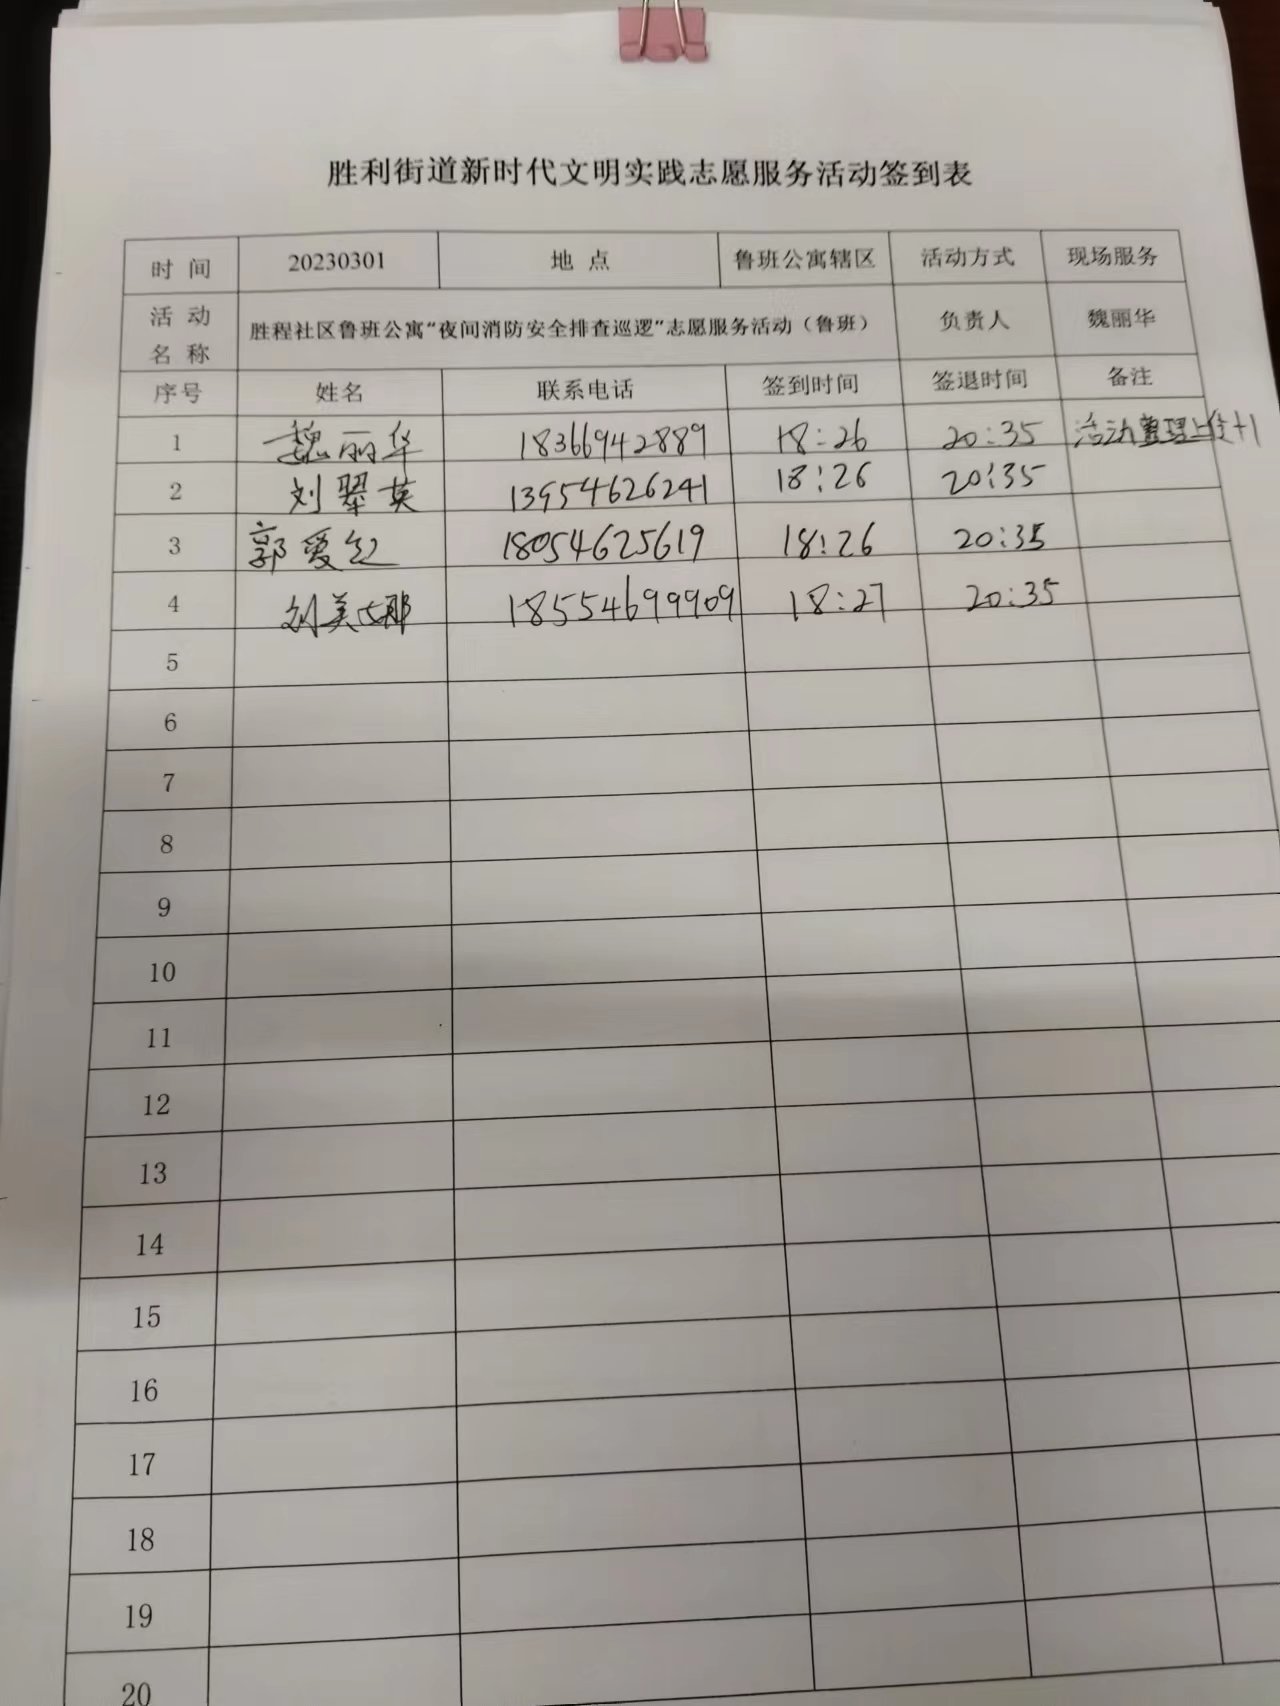 胜利街道新时代文明实践志愿服务活动签到表
时 间 20230301 地 点 鲁班公寓辖区 活动方式 现场服务
活 动 名 称 胜程社区鲁班公寓“夜间消防安全排查巡逻”志愿服务活动（鲁班） 负责人 魏丽华
序号 姓名 联系电话 签到时间 签退时间 备注
1 魏丽华 18366942889 18:26 20:35 活动整理上传+1
2 刘翠英 13954626241 18:26 20:35
3 郭爱红 18054625619 18:26 20:35
4 刘美娜 18554699909 18:27 20:35
5
6
7
8
9
10
11
12
13
14
15
16
17
18
19
20